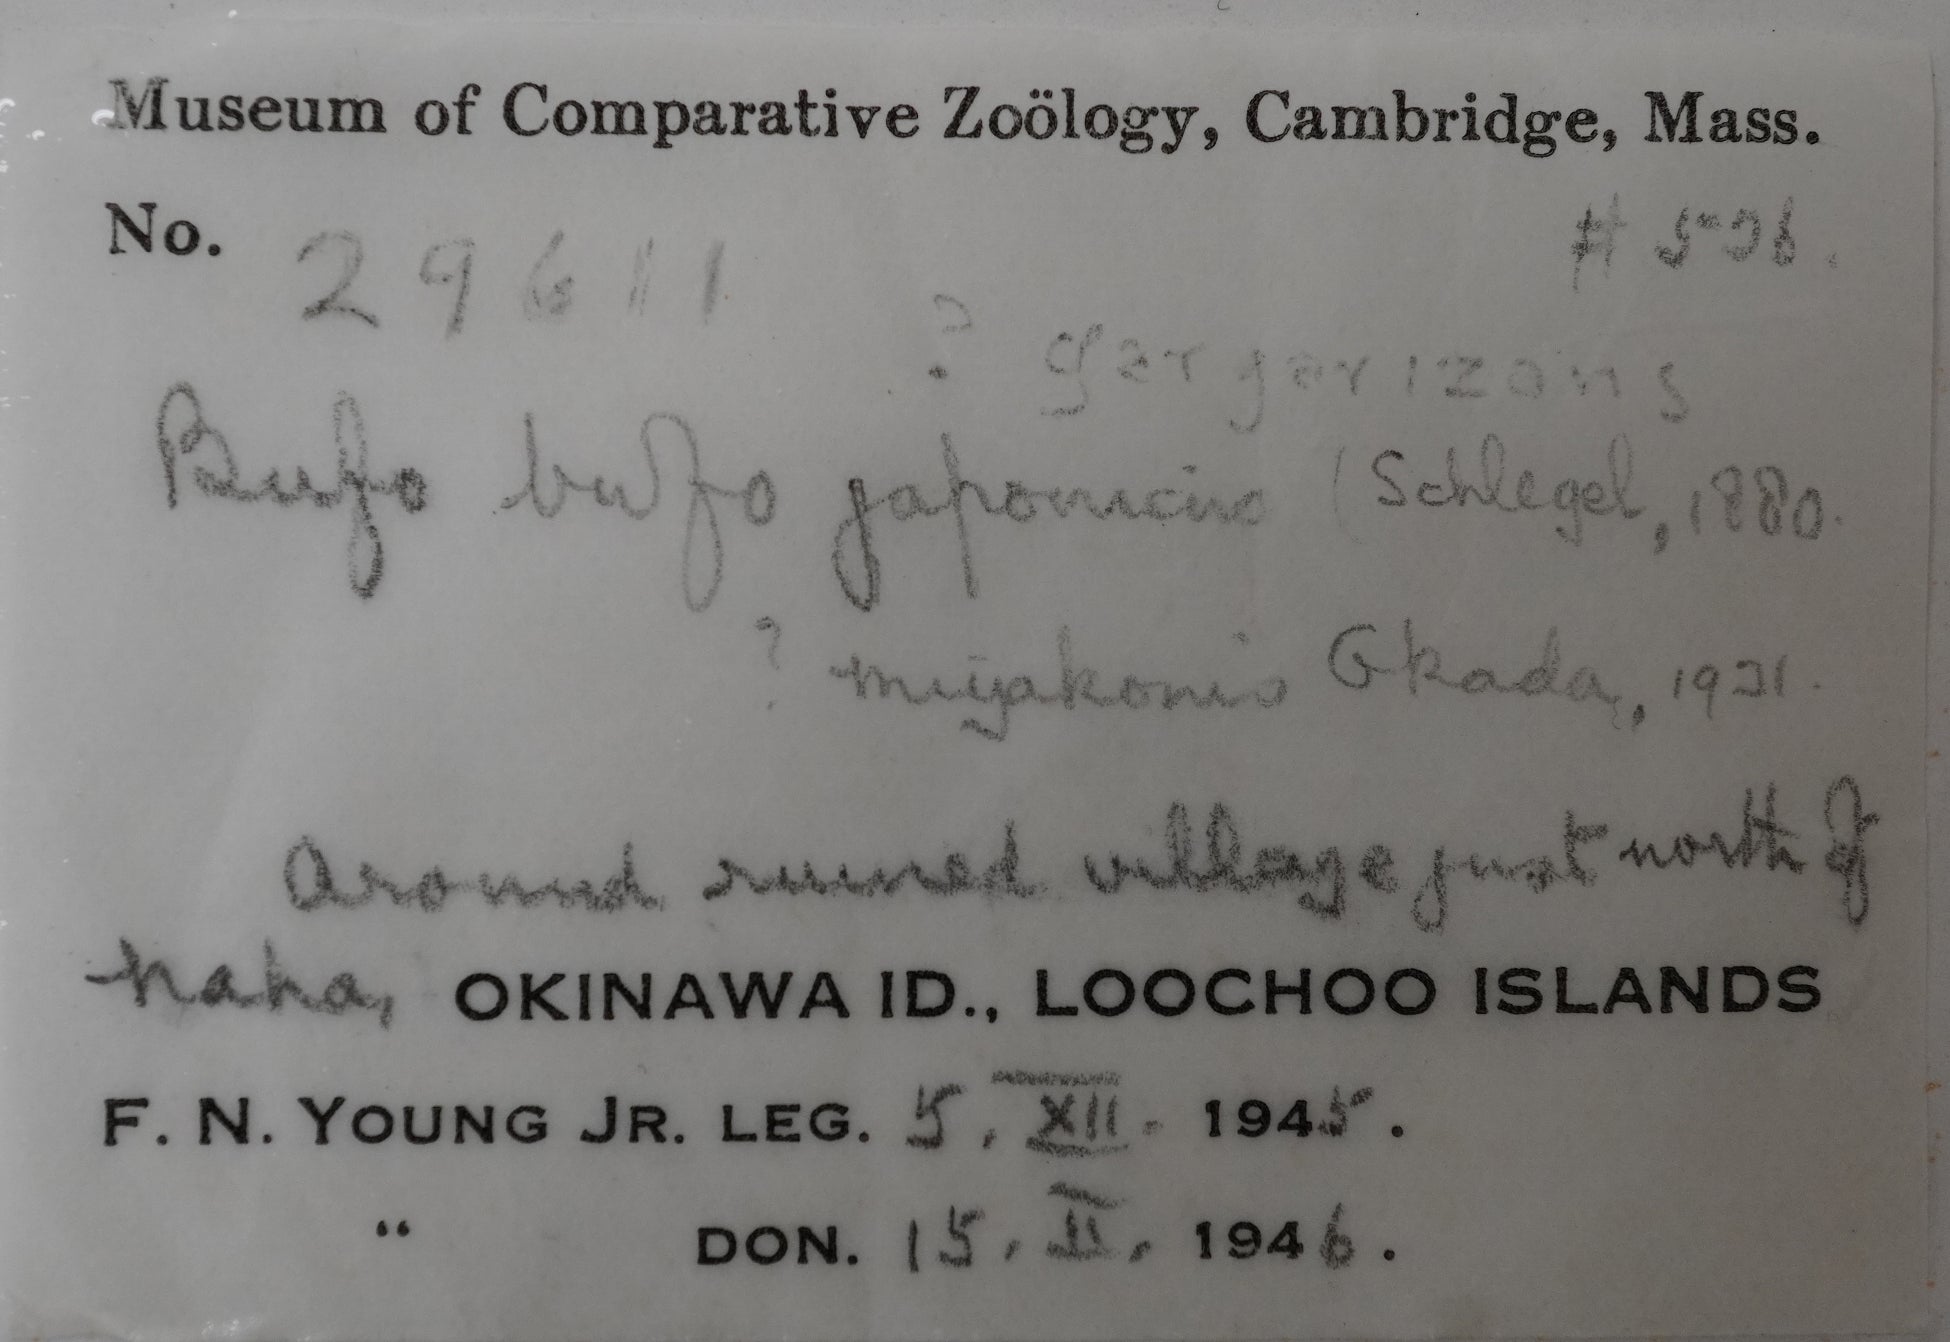 Museum of Comparative Zoölogy, Cambridge, Mass.
No. 29611 # 526.
? gargarizans
Bufo bufo japonicus (Schlegel, 1880.
? miyakonis Okada, 1931.
Around ruined village just north of
Naha, OKINAWA ID., LOOCHOO ISLANDS
F. N. YOUNG JR. LEG. 5. XII. 1945.
“ DON. 15. II. 1946.